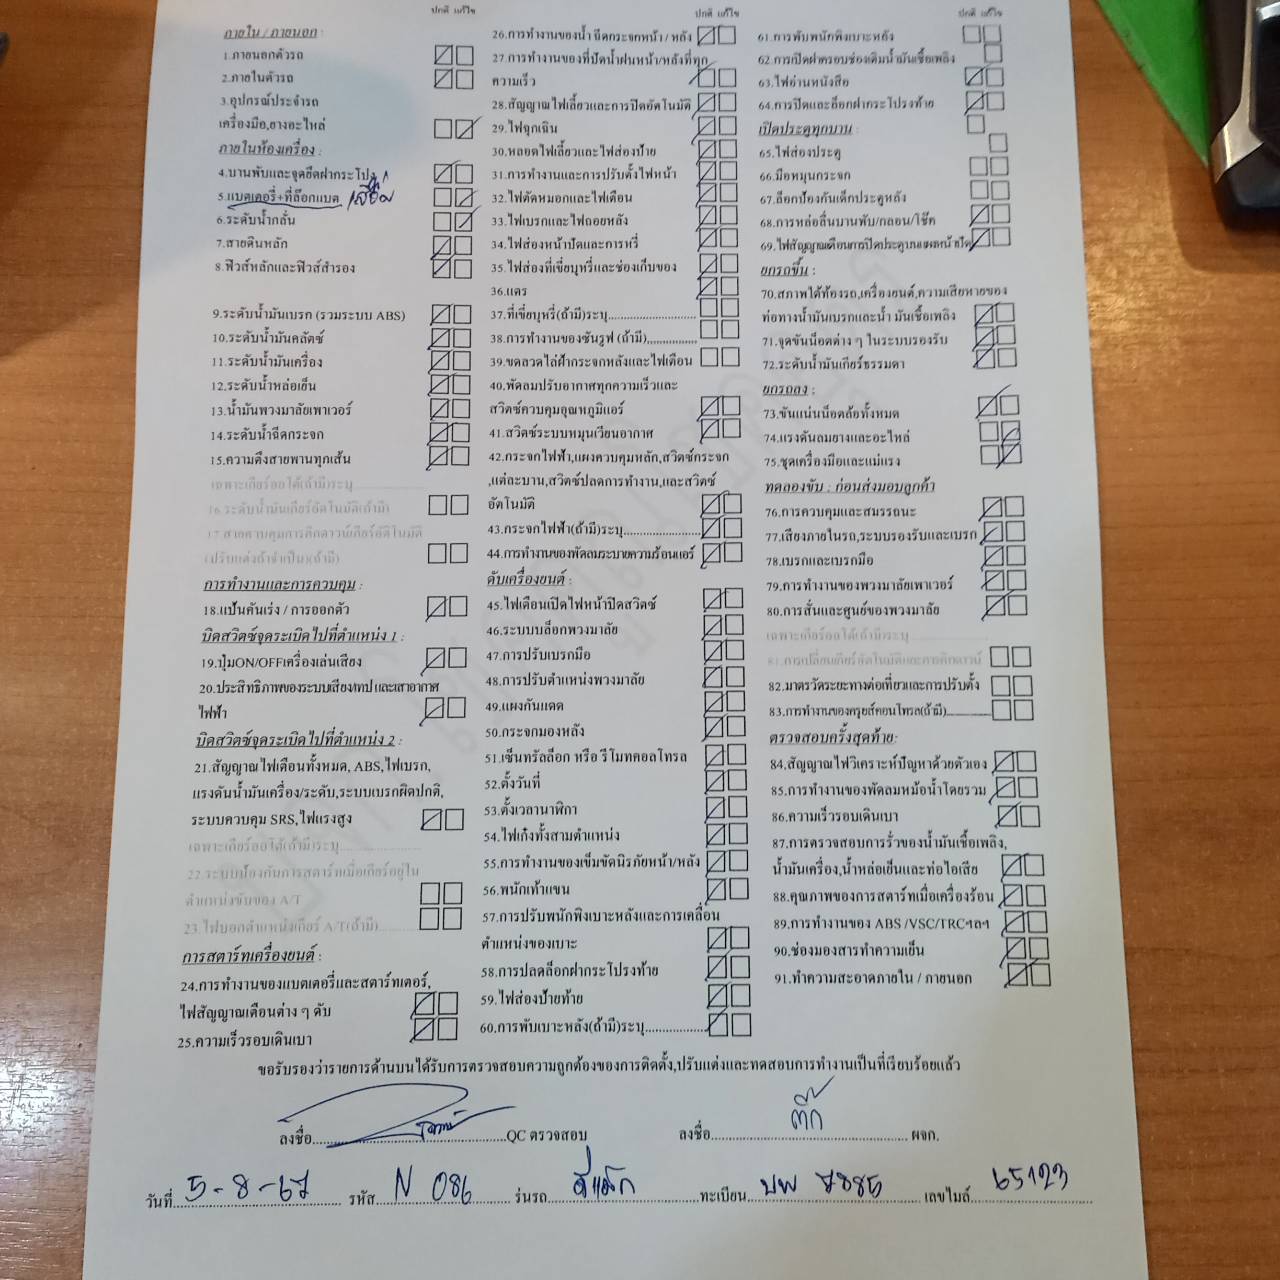 ปกติ แก้ไข
ภายใน / ภายนอก :
1.ภายนอกตัวรถ
2.ภายในตัวรถ
3.อุปกรณ์ประจำรถ
เครื่องมือ,ยางอะไหล่
ภายในห้องเครื่อง :
4.บานพับและจุดยึดฝากระโปรง
5.แบตเตอรี่+ที่ล๊อกแบต
6.ระดับน้ำกลั่น
7.สายดินหลัก
8.ฟิวส์หลักและฟิวส์สำรอง
9.ระดับน้ำมันเบรก (รวมระบบ ABS)
10.ระดับน้ำมันคลัตซ์
11.ระดับน้ำมันเครื่อง
12.ระดับน้ำหล่อเย็น
13.น้ำมันพวงมาลัยเพาเวอร์
14.ระดับน้ำฉีดกระจก
15.ความตึงสายพานทุกเส้น
เฉพาะเกียร์ออโต้(ถ้ามี)ระบุ
16.ระดับน้ำมันเกียร์อัตโนมัติ(ถ้ามี)
17.สายควบคุมการคิกดาวน์เกียร์อัติโนมัติ
(ปรับแต่งถ้าจำเป็น)(ถ้ามี)
การทำงานและการควบคุม :
18.แป้นคันเร่ง / การออกตัว
บิดสวิตซ์จุดระเบิดไปที่ตำแหน่ง 1 :
19.ปุ่มON/OFFเครื่องเล่นเสียง
20.ประสิทธิภาพของระบบเสียงเทป และเสาอากาศ
ไฟฟ้า
บิดสวิตซ์จุดระเบิดไปที่ตำแหน่ง 2 :
21.สัญญาณไฟเตือนทั้งหมด, ABS,ไฟเบรก,
แรงดันน้ำมันเครื่อง/ระดับ,ระบบเบรกผิดปกติ,
ระบบควบคุม SRS,ไฟแรงสูง
เฉพาะเกียร์ออโต้(ถ้ามี)ระบุ
22.ระบบป้องกันการสตาร์ทเมื่อเกียร์อยู่ใน
ตำแหน่งขับของ A/T
23.ไฟบอกตำแหน่งเกียร์ A/T(ถ้ามี)
การสตาร์ทเครื่องยนต์ :
24.การทำงานของแบตเตอรี่และสตาร์ทเตอร์,
ไฟสัญญาณเตือนต่าง ๆ ดับ
25.ความเร็วรอบเดินเบา
ปกติ แก้ไข
26.การทำงานของน้ำ ฉีดกระจกหน้า / หลัง
27.การทำงานของที่ปัดน้ำฝนหน้า/หลังที่ทุก
ความเร็ว
28.สัญญาณไฟเลี้ยวและการปิดอัตโนมัติ
29.ไฟฉุกเฉิน
30.หลอดไฟเลี้ยวและไฟส่องป้าย
31.การทำงานและการปรับตั้งไฟหน้า
32.ไฟตัดหมอกและไฟเตือน
33.ไฟเบรกและไฟถอยหลัง
34.ไฟส่องหน้าปัดและการหรี่
35.ไฟส่องที่เขี่ยบุหรี่และช่องเก็บของ
36.แตร
37.ที่เขี่ยบุหรี่(ถ้ามี)ระบุ
38.การทำงานของซันรูฟ (ถ้ามี)
39.ขดลวดไล่ฝ้ากระจกหลังและไฟเตือน
40.พัดลมปรับอากาศทุกความเร็วและ
สวิตซ์ควบคุมอุณหภูมิแอร์
41.สวิตซ์ระบบหมุนเวียนอากาศ
42.กระจกไฟฟ้า,แผงควบคุมหลัก,สวิตซ์กระจก
,แต่ละบาน,สวิตซ์ปลดการทำงาน,และสวิตซ์
อัตโนมัติ
43.กระจกไฟฟ้า(ถ้ามี)ระบุ
44.การทำงานของพัดลมระบายความร้อนแอร์
ดับเครื่องยนต์ :
45.ไฟเตือนเปิดไฟหน้าปิดสวิตซ์
46.ระบบบล็อกพวงมาลัย
47.การปรับเบรกมือ
48.การปรับตำแหน่งพวงมาลัย
49.แผงกันแดด
50.กระจกมองหลัง
51.เซ็นทรัลล็อก หรือ รีโมทคอลโทรล
52.ตั้งวันที่
53.ตั้งเวลานาฬิกา
54.ไฟเก๋งทั้งสามตำแหน่ง
55.การทำงานของเข็มขัดนิรภัยหน้า/หลัง
56.พนักเท้าแขน
57.การปรับพนักพิงเบาะหลังและการเคลื่อน
ตำแหน่งของเบาะ
58.การปลดล็อกฝากระโปรงท้าย
59.ไฟส่องป้ายท้าย
60.การพับเบาะหลัง(ถ้ามี)ระบุ
ปกติ แก้ไข
61.การพับพนักพิงเบาะหลัง
62.การเปิดฝาครอบช่องเติมน้ำมันเชื้อเพลิง
63.ไฟอ่านหนังสือ
64.การปิดและล็อกฝากระโปรงท้าย
เปิดประตูทุกบาน :
65.ไฟส่องประตู
66.มือหมุนกระจก
67.ล็อกป้องกันเด็กประตูหลัง
68.การหล่อลื่นบานพับ/กลอน/โช๊ค
69.ไฟสัญญาณเตือนการปิดประตูบนแผงหน้าปัด
ยกรถขึ้น :
70.สภาพใต้ท้องรถ,เครื่องยนต์,ความเสียหายของ
ท่อทางน้ำมันเบรกและน้ำ มันเชื้อเพลิง
71.จุดขันน็อตต่าง ๆ ในระบบรองรับ
72.ระดับน้ำมันเกียร์ธรรมดา
ยกรถลง :
73.ขันแน่นน็อตล้อทั้งหมด
74.แรงดันลมยางและอะไหล่
75.ชุดเครื่องมือและแม่แรง
ทดลองขับ : ก่อนส่งมอบลูกค้า
76.การควบคุมและสมรรถนะ
77.เสียงภายในรถ,ระบบรองรับและเบรก
78.เบรกและเบรกมือ
79.การทำงานของพวงมาลัยเพาเวอร์
80.การสั่นและศูนย์ของพวงมาลัย
เฉพาะเกียร์ออโต้(ถ้ามี)ระบุ
81.การเปลี่ยนเกียร์อัตโนมัติและการคิกดาวน์
82.มาตรวัดระยะทางต่อเที่ยวและการปรับตั้ง
83.การทำงานของครุยส์คอนโทรล(ถ้ามี)
ตรวจสอบครั้งสุดท้าย:
84.สัญญาณไฟวิเคราะห์ปัญหาด้วยตัวเอง
85.การทำงานของพัดลมหม้อน้ำโดยรวม
86.ความเร็วรอบเดินเบา
87.การตรวจสอบการรั่วของน้ำมันเชื้อเพลิง,
น้ำมันเครื่อง,น้ำหล่อเย็นและท่อไอเสีย
88.คุณภาพของการสตาร์ทเมื่อเครื่องร้อน
89.การทำงานของ ABS /VSC/TRCฯลฯ
90.ช่องมองสารทำความเย็น
91.ทำความสะอาดภายใน / ภายนอก
ขอรับรองว่ารายการด้านบนได้รับการตรวจสอบความถูกต้องของการติดตั้ง,ปรับแต่งและทดสอบการทำงานเป็นที่เรียบร้อยแล้ว
ลงชื่อ QC ตรวจสอบ ลงชื่อ ต๊ัก ผจก.
วันที่ 5-8-67 รหัส N 086 รุ่นรถ ดีแม็ก ทะเบียน บพ เลขไมล์ 65123